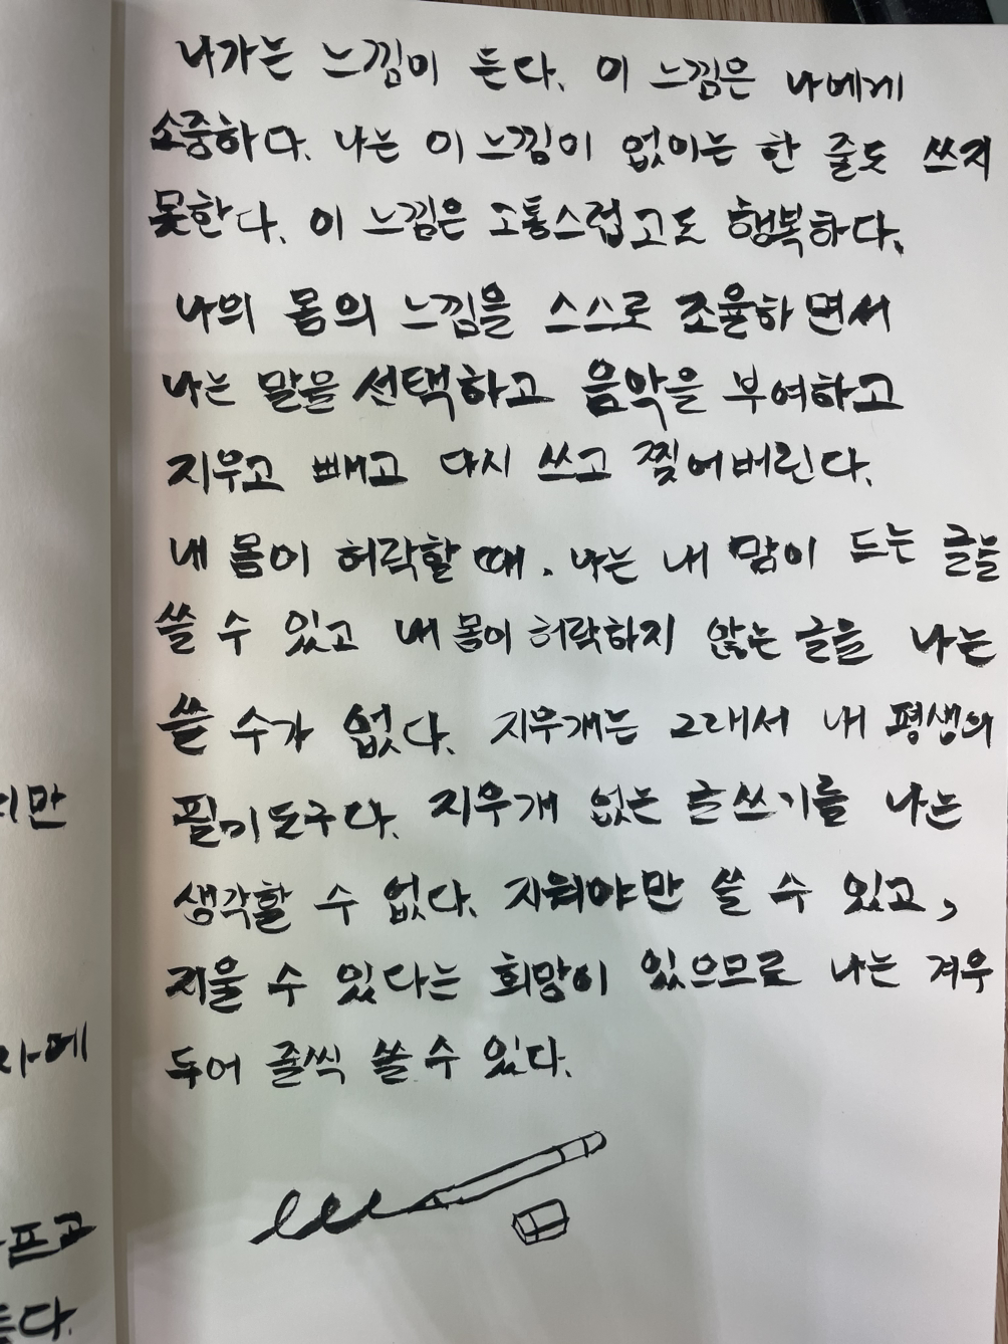 나가는 느낌이 든다. 이 느낌은 나에게
소중하다. 나는 이 느낌이 없이는 한 줄도 쓰지
못한다. 이 느낌은 고통스럽고도 행복하다.
나의 몸의 느낌을 스스로 조율하면서
나는 말을 선택하고 음악을 부여하고
지우고 빼고 다시 쓰고 찢어버린다.
내 몸이 허락할 때, 나는 내 맘이 드는 글을
쓸 수 있고 내 몸이 허락하지 않는 글을 나는
쓸 수가 없다. 지우개는 그래서 내 평생의
필기도구다. 지우개 없는 글쓰기를 나는
생각할 수 없다. 지워야만 쓸 수 있고,
지울 수 있다는 희망이 있으므로 나는 겨우
두어 줄씩 쓸 수 있다.
지만
자에
프고
든다.